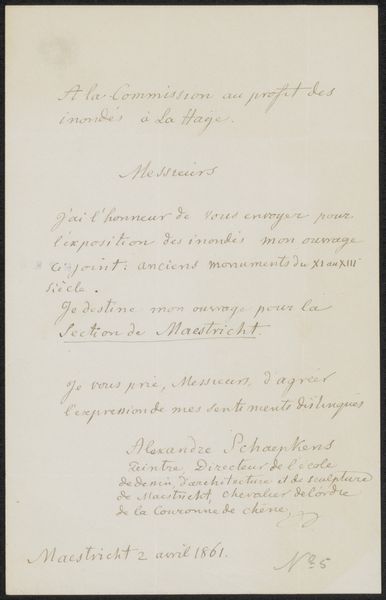 A la Commission au profit des
inondés à La Haÿe.
Messieurs
J'ai l'honneur de vous envoyer pour
l'exposition des inondés mon ouvrage
ci-joint: anciens monuments du XI au XIII
siècle.
Je destine mon ouvrage pour la
Section de Maestricht.
Je vous prie, Messieurs, d'agréer
l'expression de mes sentiments distingués
Alexandre Schaepkens
Peintre, Directeur de l'école
de dessin, d'architecture et de sculpture
de Maestricht, chevalier de l'ordre
de la Couronne de chêne,
Maestricht 2 avril 1861.
No. 5